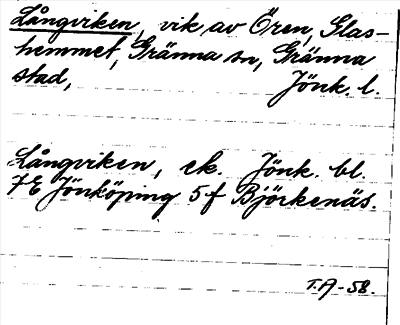 Långviken, vik av Ören, Glas-
hemmet, Gränna sn, Gränna
stad, Jönk. l.
Långviken, ek. Jönk. bl.
7E Jönköping 5 f Björkenäs.
T.A-58.